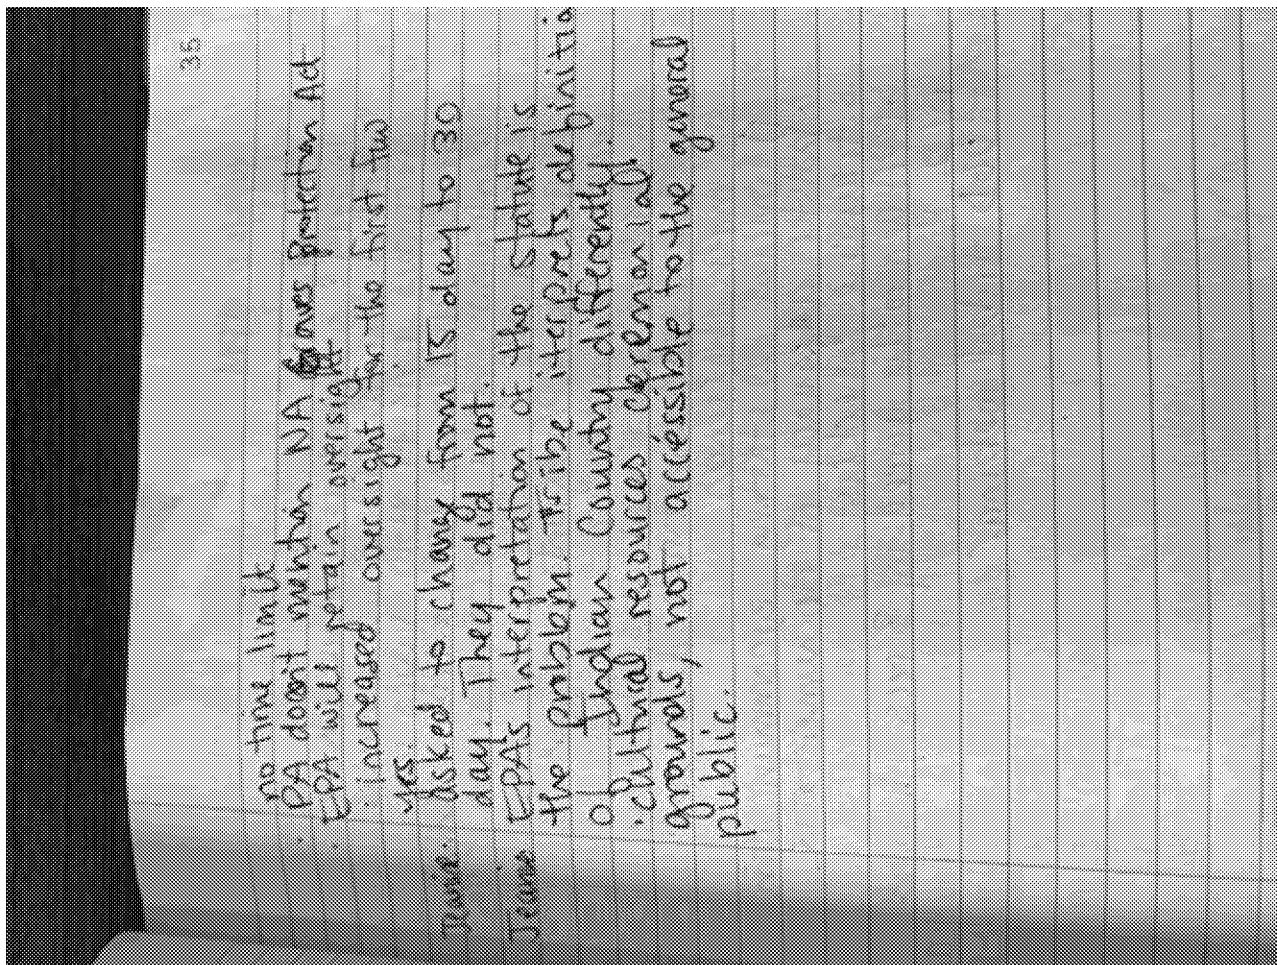 35
no time limit
· PA doesn't mention NA graves protection Act
· EPA will retain oversight
· increased oversight for the first few
yrs
asked to change from 15 day to 30
day. They did not.
EPAs interpretation of the statute is
the problem. Tribe iterprets definitio
of Indian Country differently.
· Cultural resources Ceremonial
grounds, not accessible to the general
public.